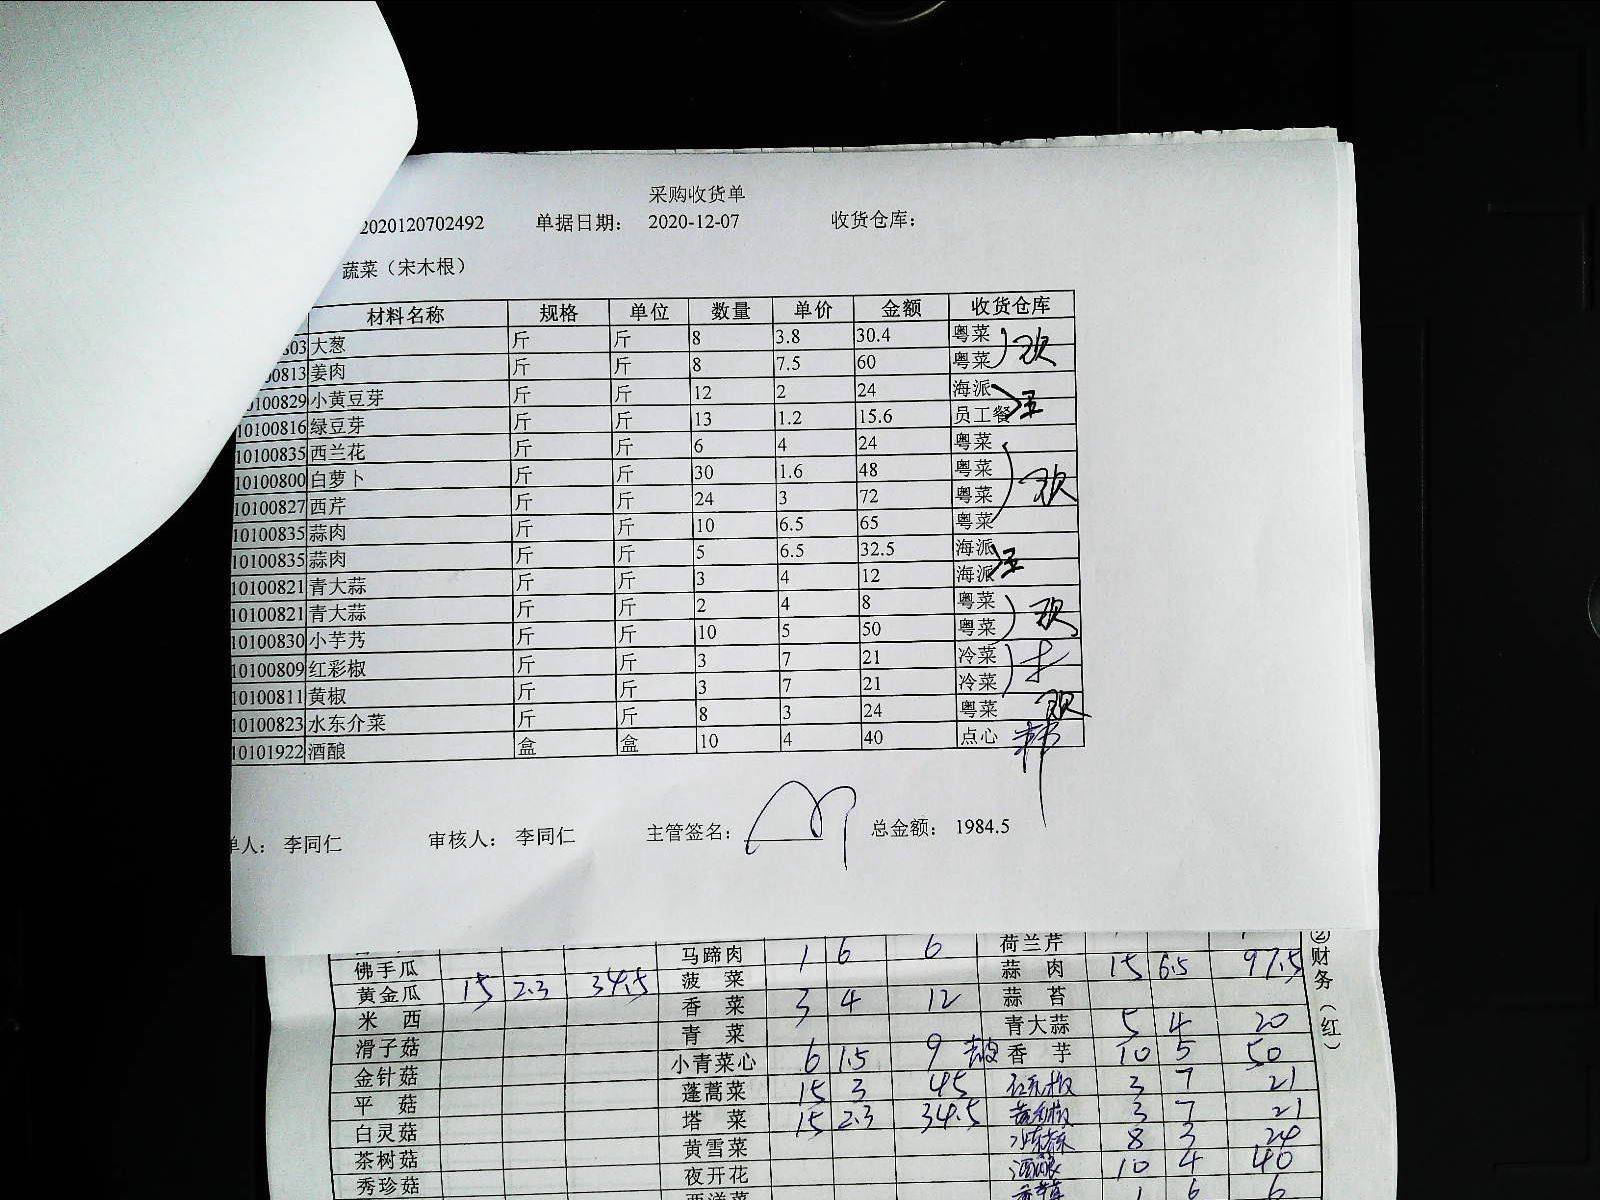 采购收货单
2020120702492 单据日期： 2020-12-07 收货仓库：
蔬菜（宋木根）
材料名称 规格 单位 数量 单价 金额 收货仓库
803 大葱 斤 斤 8 3.8 30.4 粤菜
0100813 姜肉 斤 斤 8 7.5 60 粤菜 欢
0100829 小黄豆芽 斤 斤 12 2 24 海派
10100816 绿豆芽 斤 斤 13 1.2 15.6 员工餐 王
10100835 西兰花 斤 斤 6 4 24 粤菜
10100800 白萝卜 斤 斤 30 1.6 48 粤菜
10100827 西芹 斤 斤 24 3 72 粤菜 欢
10100835 蒜肉 斤 斤 10 6.5 65 粤菜
10100835 蒜肉 斤 斤 5 6.5 32.5 海派
10100821 青大蒜 斤 斤 3 4 12 海派 王
10100821 青大蒜 斤 斤 2 4 8 粤菜
10100830 小芋艿 斤 斤 10 5 50 粤菜 欢
10100809 红彩椒 斤 斤 3 7 21 冷菜
10100811 黄椒 斤 斤 3 7 21 冷菜
10100823 水东介菜 斤 斤 8 3 24 粤菜 欢
10101922 酒酿 盒 盒 10 4 40 点心 韩
单人： 李同仁 审核人： 李同仁 主管签名： 总金额： 1984.5
马蹄肉 1 6 6 荷兰芹
佛手瓜 菠菜 蒜肉 15 6.5 97.5
黄金瓜 15 2.3 34.5 香菜 3 4 12 蒜苔
米西 青菜 青大蒜 5 4 20
滑子菇 小青菜心 6 1.5 9 香芋 10 5 50
金针菇 蓬蒿菜 15 3 45 红彩椒 3 7 21
平菇 塔菜 15 2.3 34.5 黄彩椒 3 7 21
白灵菇 黄雪菜 8 3 24
茶树菇 夜开花 酒酿 10 4 40
秀珍菇 西洋菜 1 6 6
②财务（红）